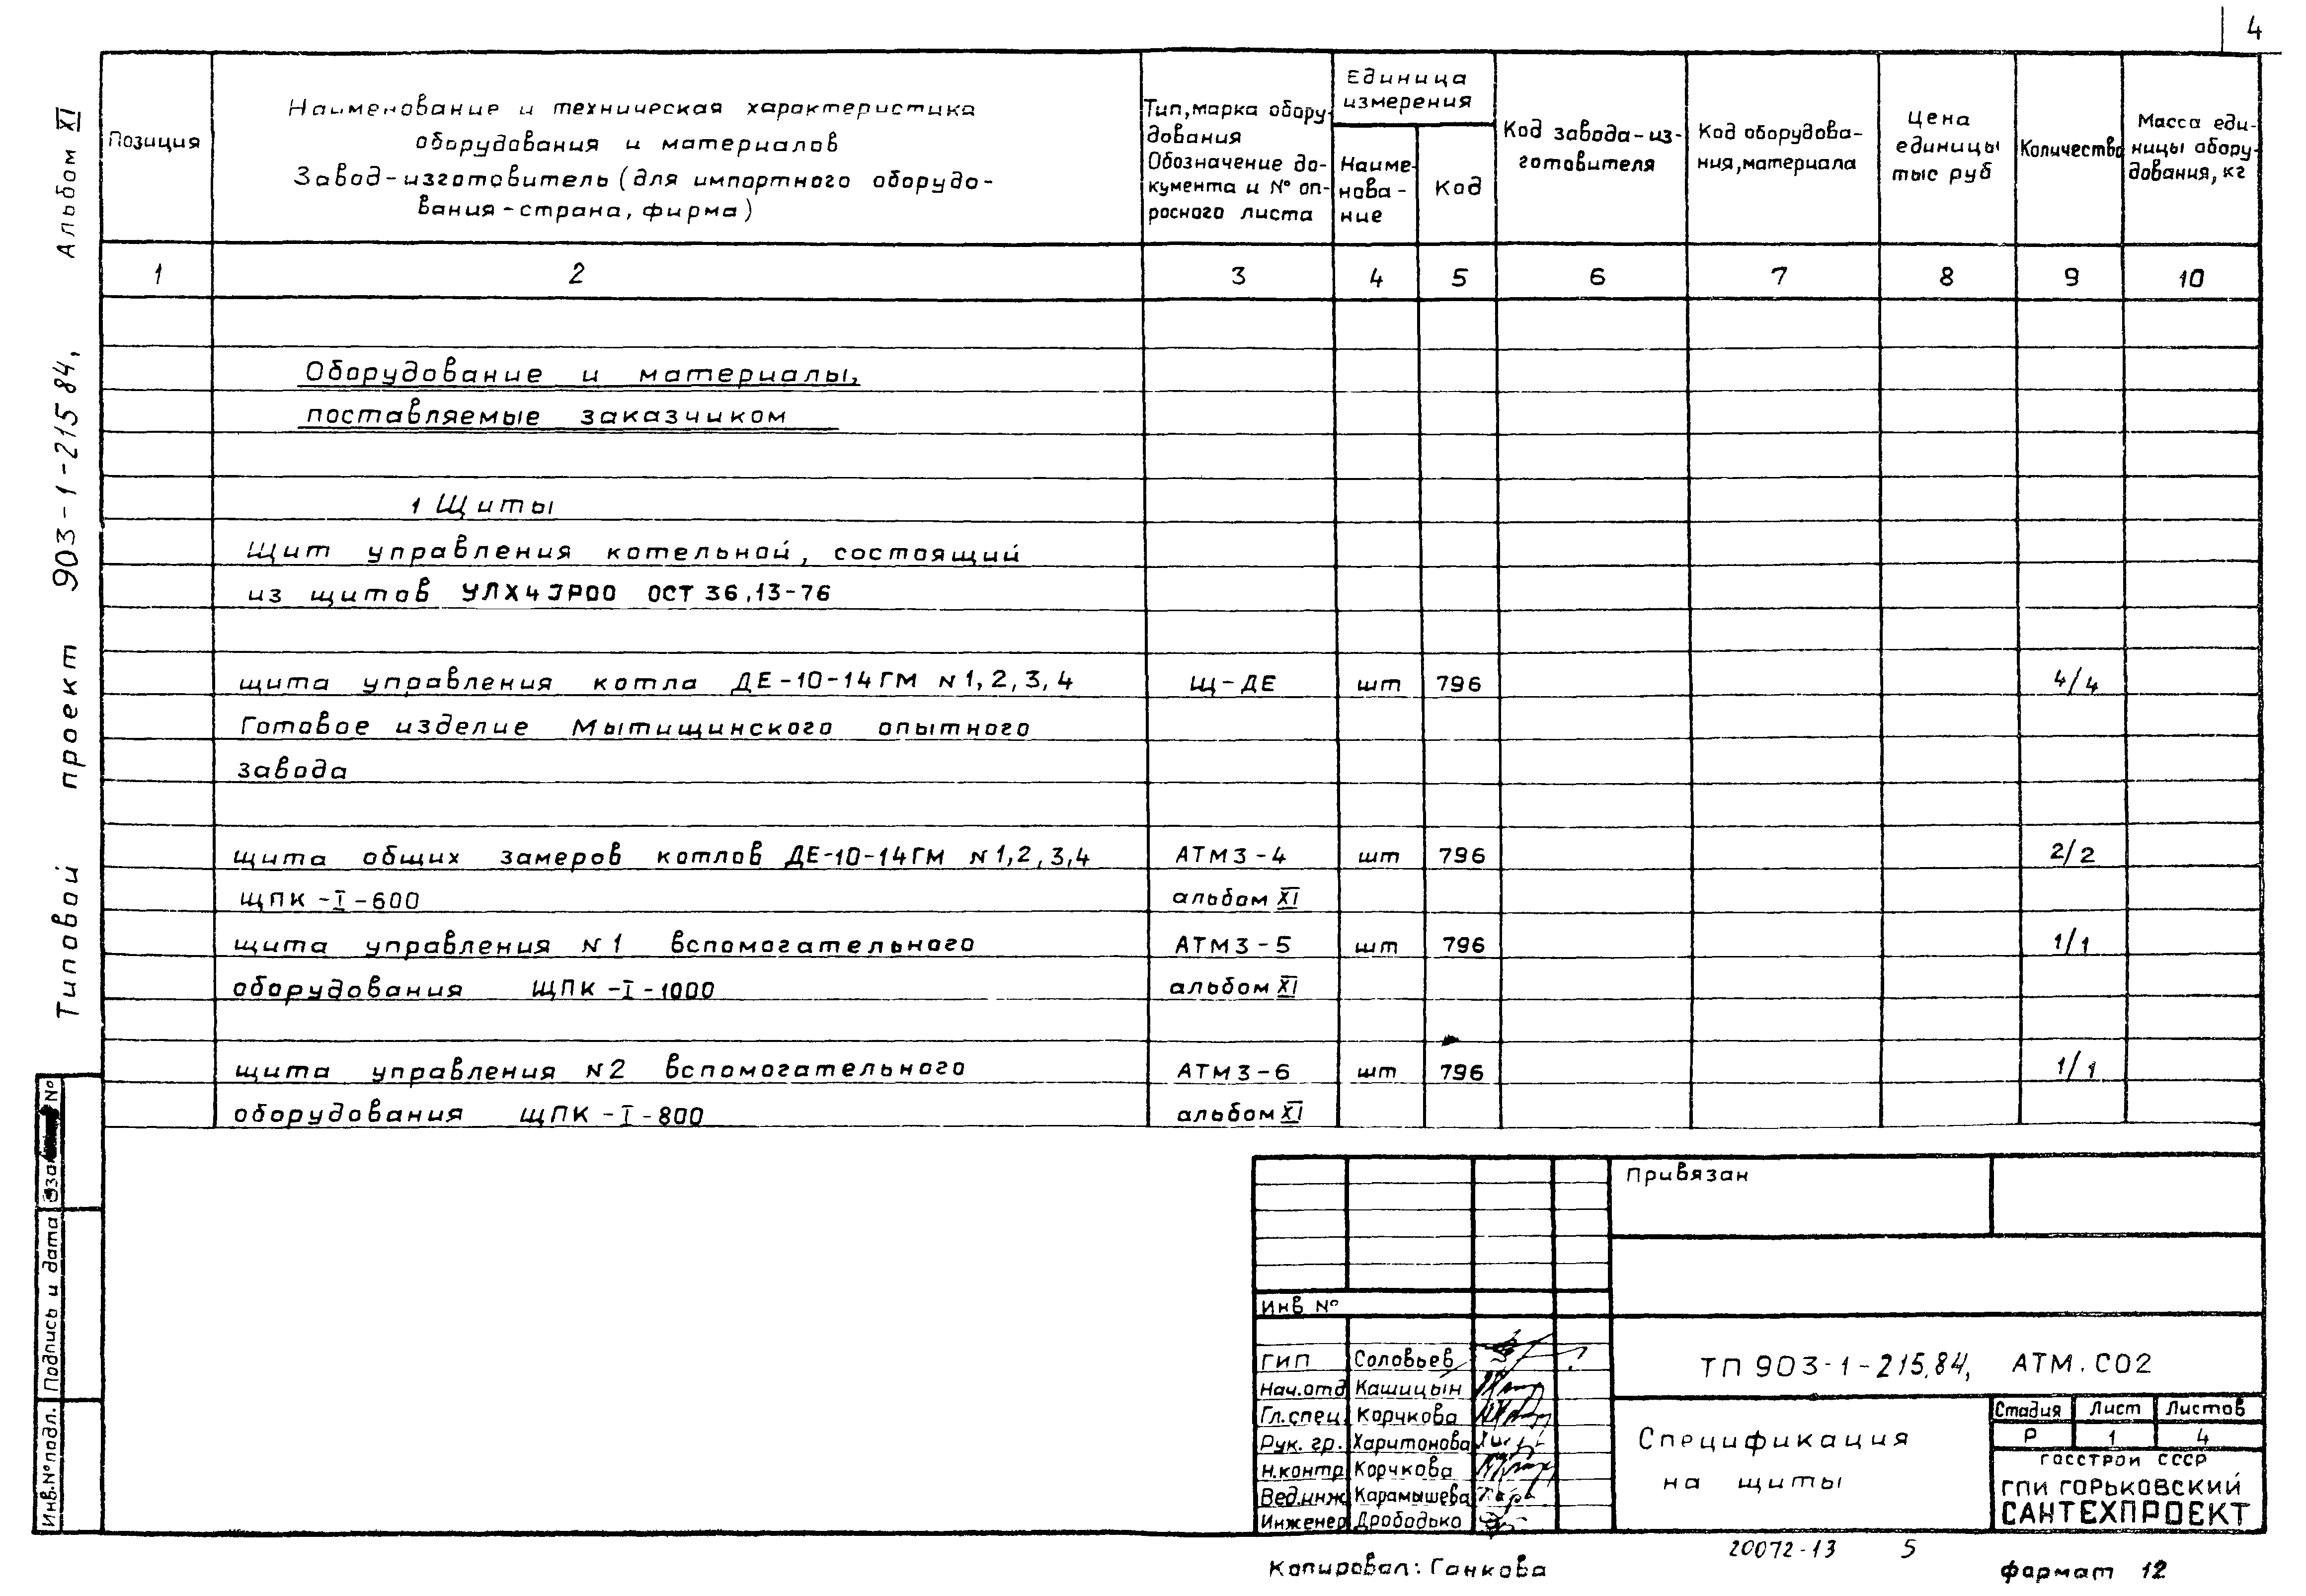 4
Альбом XI
Типовой проект 903-1-215 84,
Позиция
Наименование и техническая характеристика
оборудования и материалов
Завод-изготовитель (для импортного оборудо-
вания-страна, фирма)
Тип, марка обору-
дования
Обозначение до-
кумента и № оп-
росного листа
Единица
измерения
Наиме-
нова-
ние
Код
Код завода-из-
готовителя
Код оборудова-
ния, материала
Цена
единицы
тыс руб
Количество
Масса еди-
ницы обору-
дования, кг
1 2 3 4 5 6 7 8 9 10
Оборудование и материалы,
поставляемые заказчиком
1 Щиты
Щит управления котельной, состоящий
из щитов УЛХ4 JP00 ОСТ 36.13-76
щита управления котла ДЕ-10-14ГМ N1,2,3,4 Щ-ДЕ шт 796 4/4
Готовое изделие Мытищинского опытного
завода
щита общих замеров котлов ДЕ-10-14ГМ N1,2,3,4 АТМ3-4 шт 796 2/2
ЩПК-I-600 альбом XI
щита управления N1 вспомогательного АТМ3-5 шт 796 1/1
оборудования ЩПК-I-1000 альбом XI
щита управления N2 вспомогательного АТМ3-6 шт 796 1/1
оборудования ЩПК-I-800 альбом XI
Инв.№подл. Подпись и дата №
Привязан
Инв №
ГИП Соловьев
Нач.отд Кашицын
Гл.спец. Корчкова
Рук. гр. Харитонова
Н.контр Корчкова
Вед.инж Карамышева
Инженер Дрободько
ТП 903-1-215.84, АТМ.СО2
Спецификация
на щиты
Стадия Лист Листов
Р 1 4
ГОССТРОЙ СССР
ГПИ ГОРЬКОВСКИЙ
САНТЕХПРОЕКТ
20072-13 5
Копировал: Ганкова
формат 12